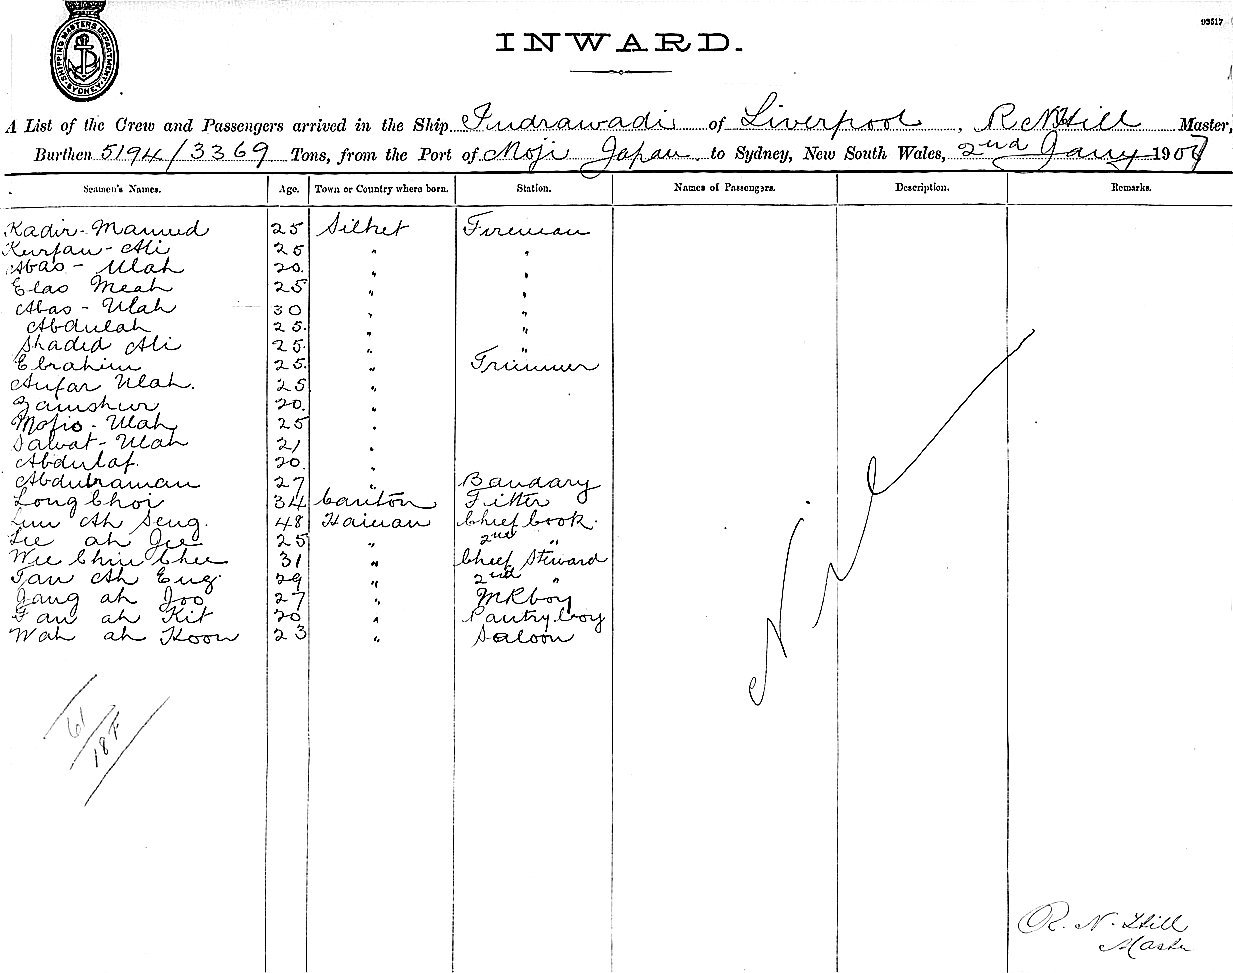 93517
SHIPPING MASTER'S DEPARTMENT SYDNEY
INWARD.
A List of the Crew and Passengers arrived in the Ship Indrawadi of Liverpool, R N Hill Master,
Burthen 5194/3369 Tons, from the Port of Moji Japan to Sydney, New South Wales, 2nd Jany 1907
Seamen's Names. Age. Town or Country where born. Station. Names of Passengers. Description. Remarks.
Kadir - Mamud 25 Silhet Fireman
Kurfan - Ali 25 " "
Abas - Ulah 20. " "
Elas Meah 25 " "
Abas - Ulah 30 " "
Abdulah 25. " "
Shadid Ali 25. " "
Ebrahim 25. " Trimmer
Aufar Ulah. 25 "
Zamshur 20. "
Mofis - Ulah 25 "
Salvat - Ulah 21 "
Abdulaf. 20. "
Abdulraman 27 " Bandary
Long Choi 34 Canton Fitter
Lim Ah Seng. 48 Hainan Chief Cook.
Lie ah Gee 25 " 2nd "
Wee Chin Chee 31 " Chief Steward
Tan Ah Eng. 29 " 2nd "
Gang ah Joo 27 " MR boy
Fan ah Kit 20 " Pantry boy
Wah ah Koon 23 " Saloon
Nil
61/18F
R. N. Hill
Master